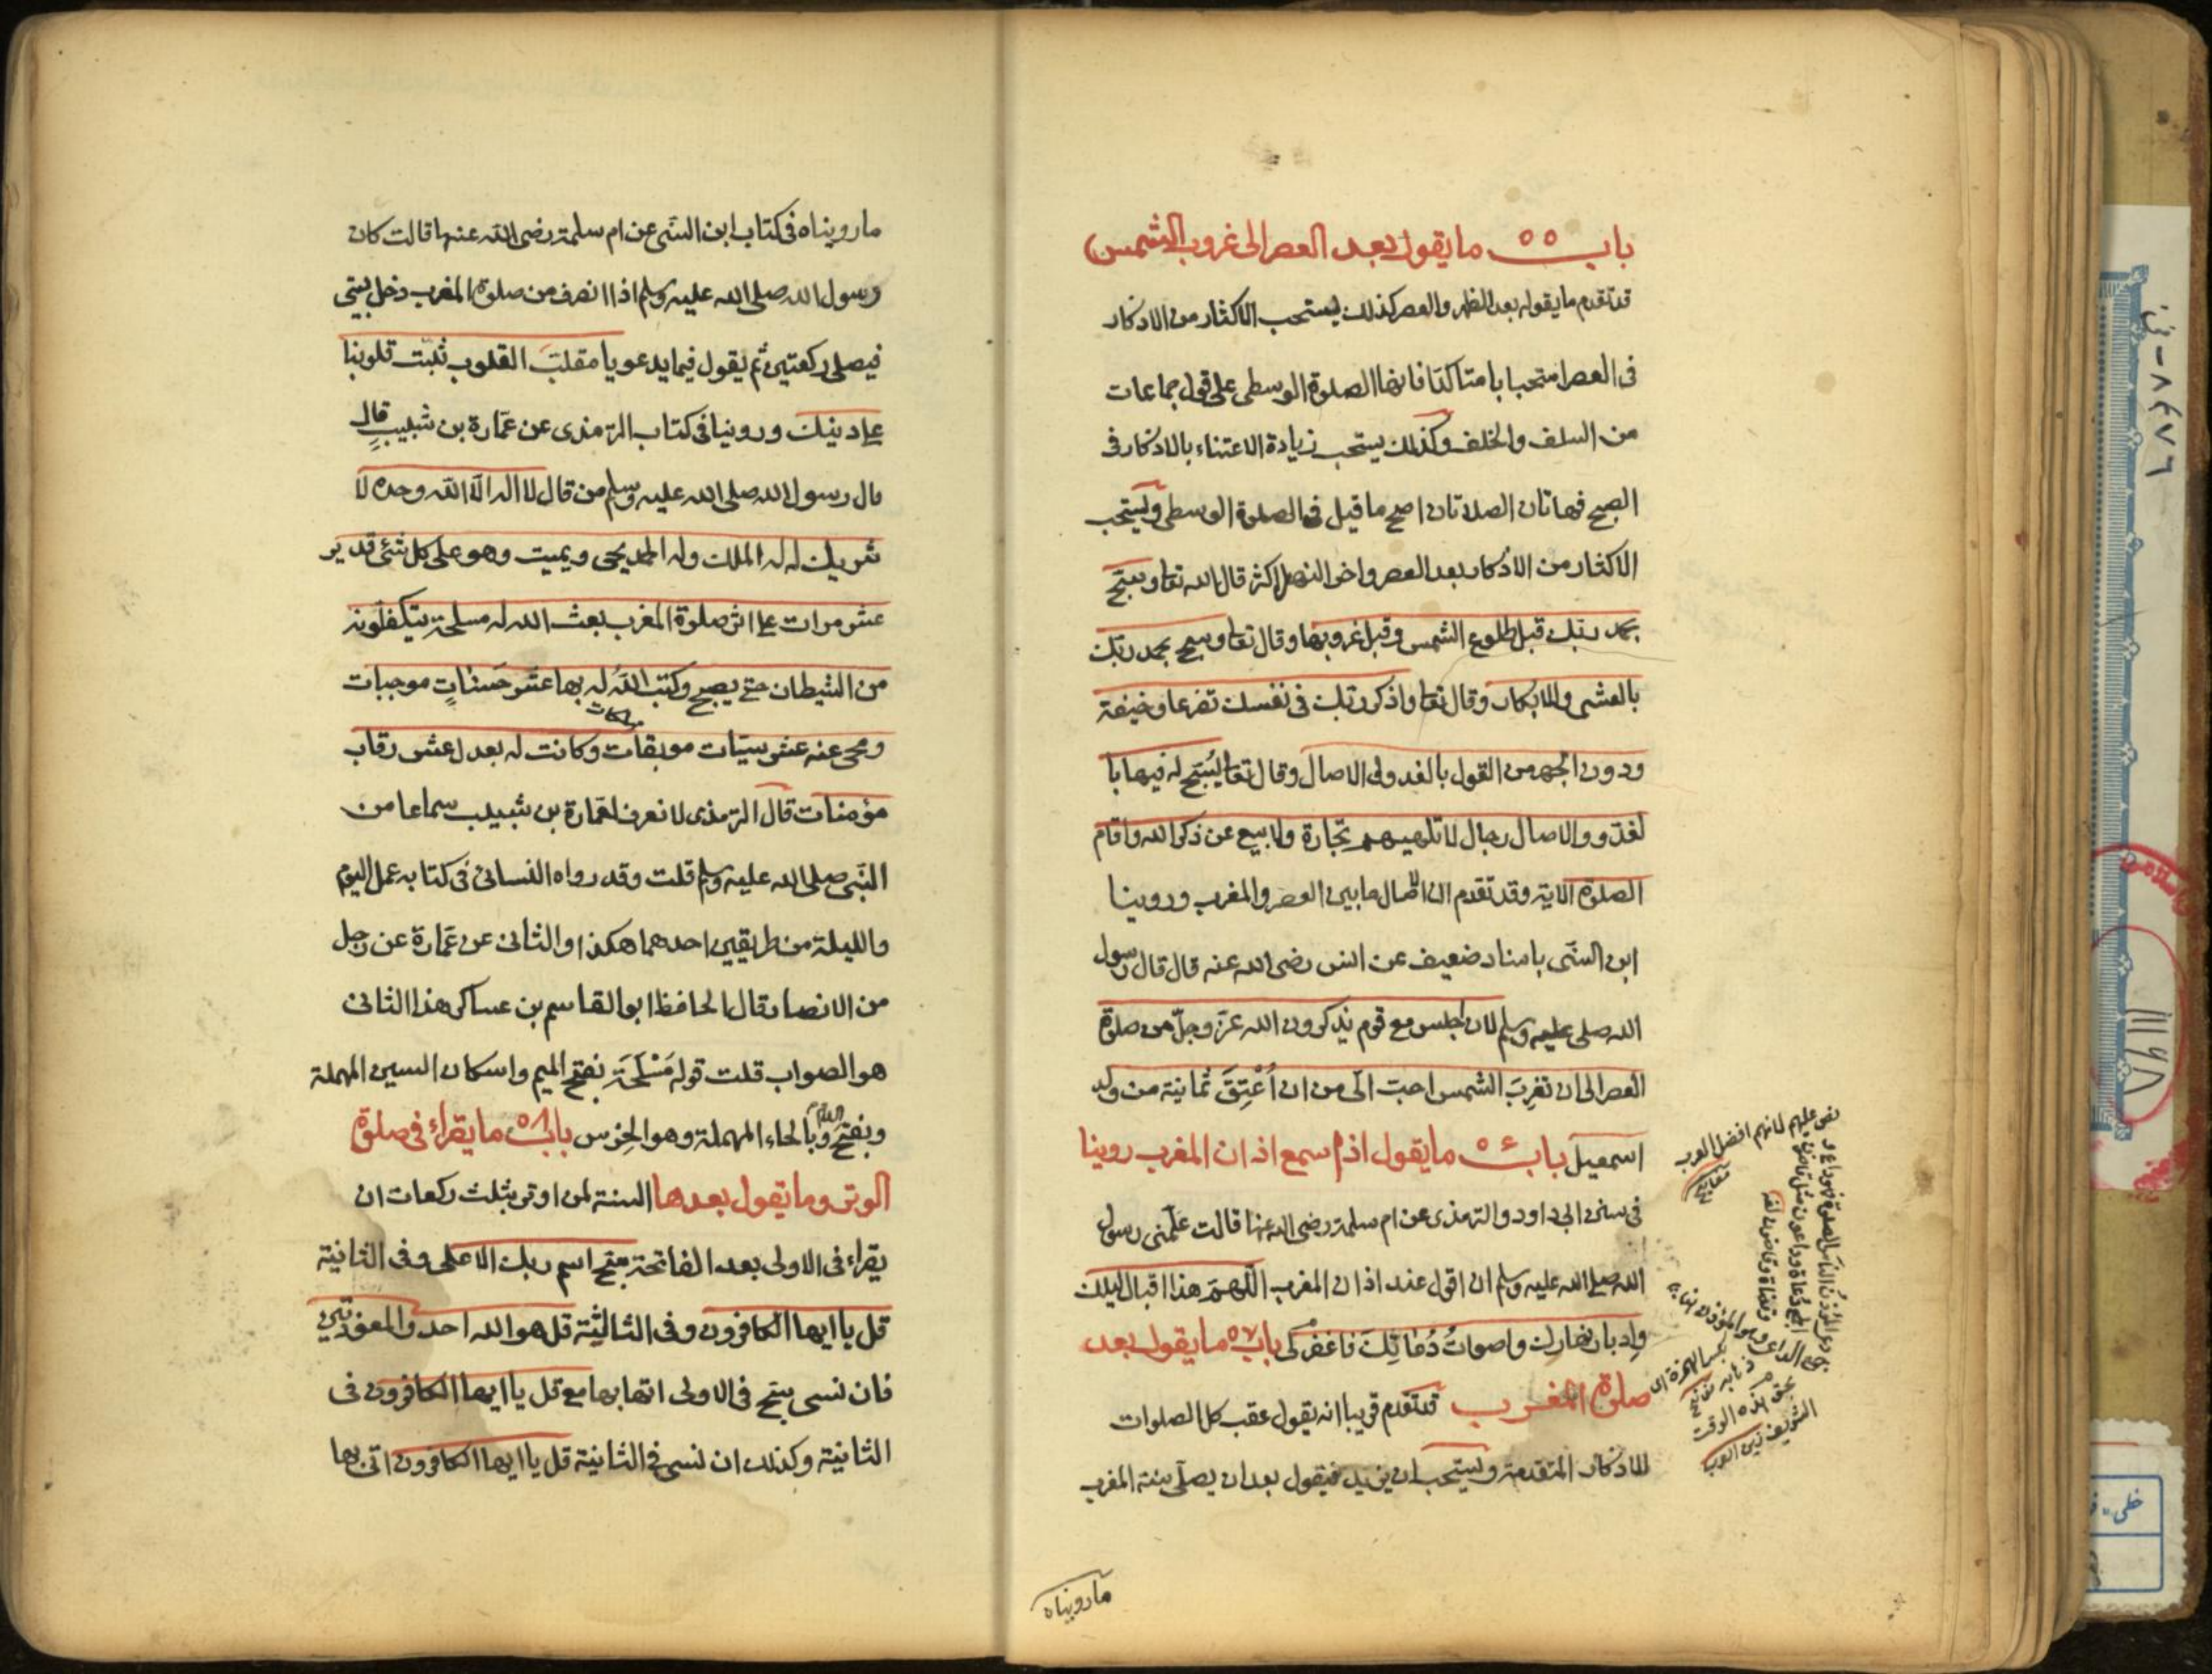 باب ٥٥ ما يقول بعد العصر الى غروب الشمس
قد تقدم ما يقوله بعد الظهر والعصر كذلك يستحب الاكثار من الاذكار
فى العصر استحبابا متاكدا فانها الصلوة الوسطى على قول جماعات
من السلف والخلف وكذلك يستحب زيادة الاعتناء بالاذكار فى
الصبح فهاتان الصلاتان اصح ما قيل فى الصلوة الوسطى ويستحب
الاكثار من الاذكار بعد العصر واخر النهار اكثر قال الله تعا وسبح
بحمد ربك قبل طلوع الشمس وقبل غروبها وقال تعا وسبح بحمد ربك
بالعشى والابكار وقال تعا واذكر ربك فى نفسك تضرعا وخيفة
ودون الجهر من القول بالغدو والاصال وقال تعا يُسَبِّح له فيها با
لغدّو والاصال رجال لا تلهيهم تجارة ولا بيع عن ذكر الله واقام
الصلوة الاية وقد تقدم ان الاصال ما بين العصر والمغرب وروينا
ابن السنّى باسناد ضعيف عن انس رضى الله عنه قال قال رسول
الله صلى عليه وسلم لان اجلس مع قوم يذكرون الله عزّ وجلّ من صلوة
العصر الى ان تغربَ الشمس احب الىّ من ان اُعْتِقَ ثمانية من ولد
اسمعيل باب ٥٤ ما يقول اذا سمع اذان المغرب روينا
فى سنن ابى داود والترمذى عن ام سلمة رضى الله عنها قالت علّمنى رسول
الله صلى الله عليه وسلم ان اقول عند اذان المغرب اللّهمّ هذا اقبال ليلك
وادبار نهارك واصواتُ دُعَاتِكَ فاغفر لى باب ٥٧ ما يقول بعد
صلوة المغرب قد تقدم قريبا انه يقول عقب كل الصلوات
الاذكار المتقدمة ويستحب ان يزيد فيقول بعد ان يصلّى سنة المغرب
ما رويناه
نص عليهم لانهم افضل العرب
ما رويناه فى كتاب ابن السنّى عن ام سلمة رضى الله عنها قالت كان
رسول الله صلى الله عليه وسلم اذا انصرف من صلوة المغرب دخل بيتى
فيصلى ركعتين ثم يقول فيما يدعو يا مقلب القلوب ثبّت قلوبنا
على دينك وروينا فى كتاب الترمذى عن عمّارة بن شبيبٍ قال
قال رسول الله صلى الله عليه وسلم من قال لا اله الّا الله وحده لا
شريك له له الملك وله الحمد يحيى ويميت وهو على كل شئ قدير
عشر مرات على اثر صلوة المغرب بعث الله له مسلحة يتكفلونه
من الشيطان حتى يصبح وكتب اللهُ له بها عشر حَسَنَاتٍ موجبات
ومحى عنه عشر سيّات موبقات وكانت له بعدل عشر رقاب
مؤمنات قال الترمذى لا نعرف لعمّارة بن شبيب سماعا من
النّبى صلى الله عليه وسلم قلت وقد رواه النسائى فى كتابه عمل اليوم
والليلة من طريقين احدهما هكذا والثانى عن عمّارة عن رجل
من الانصار قال الحافظ ابو القاسم بن عساكر هذا الثانى
هو الصواب قلت قوله مَسْلَحَة بفتح الميم واسكان السين المهملة
وبفتح اللام وبالحاء المهملة وهو الحَرَس باب ٥٨ ما يقراء فى صلوة
الوتر وما يقول بعدها السنة لمن اوتر بثلث ركعات ان
يقراء فى الاولى بعد الفاتحة سبح اسم ربك الاعلى وفى الثانية
قل يا ايها الكافرون وفى الثالثة قل هو الله احد والمعوّذتين
فان نسى سبح فى الاولى اتى بها مع قل يا ايها الكافرون فى
الثانية وكذلك ان نسى فى الثانية قل يا ايها الكافرون اتى بها